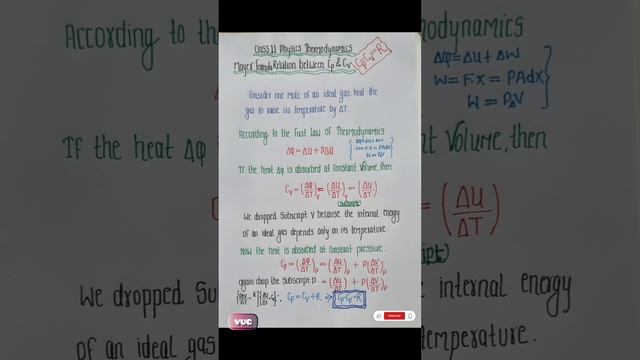 Class 11 Physics Thermodynamics
Mayer Formula Relation between Cp & Cv
Cp-Cv=R
Consider one mole of an ideal gas, heat the
gas to raise its temperature by ΔT.
According to the First law of Thermodynamics
ΔQ = ΔU + PΔU
ΔQ=ΔU+ΔW
W=F.x=PAdx
W=PΔV
If the heat ΔQ is absorbed at Constant Volume, then
Cv = (ΔQ/ΔT)v = (ΔU/ΔT)v = (ΔU/ΔT)
We dropped Subscript V because the internal energy
of an ideal gas depends only on its temperature.
Now the heat is absorbed at Constant pressure.
Cp = (ΔQ/ΔT)p = (ΔU/ΔT)p + P(ΔV/ΔT)p
again drop the Subscript p = (ΔU/ΔT) + P(ΔV/ΔT)p
∴ Cp = Cv + R ⇒ Cp-Cv=R
VUC
According to th
Thermodynamics
ΔQ=ΔU+ΔW
W=F.x=PAdx
W=PΔV
If the heat ΔQ
Volume, then
= (ΔU/ΔT)
We dropped Sub
internal energy
of an ideal gas
temperature.